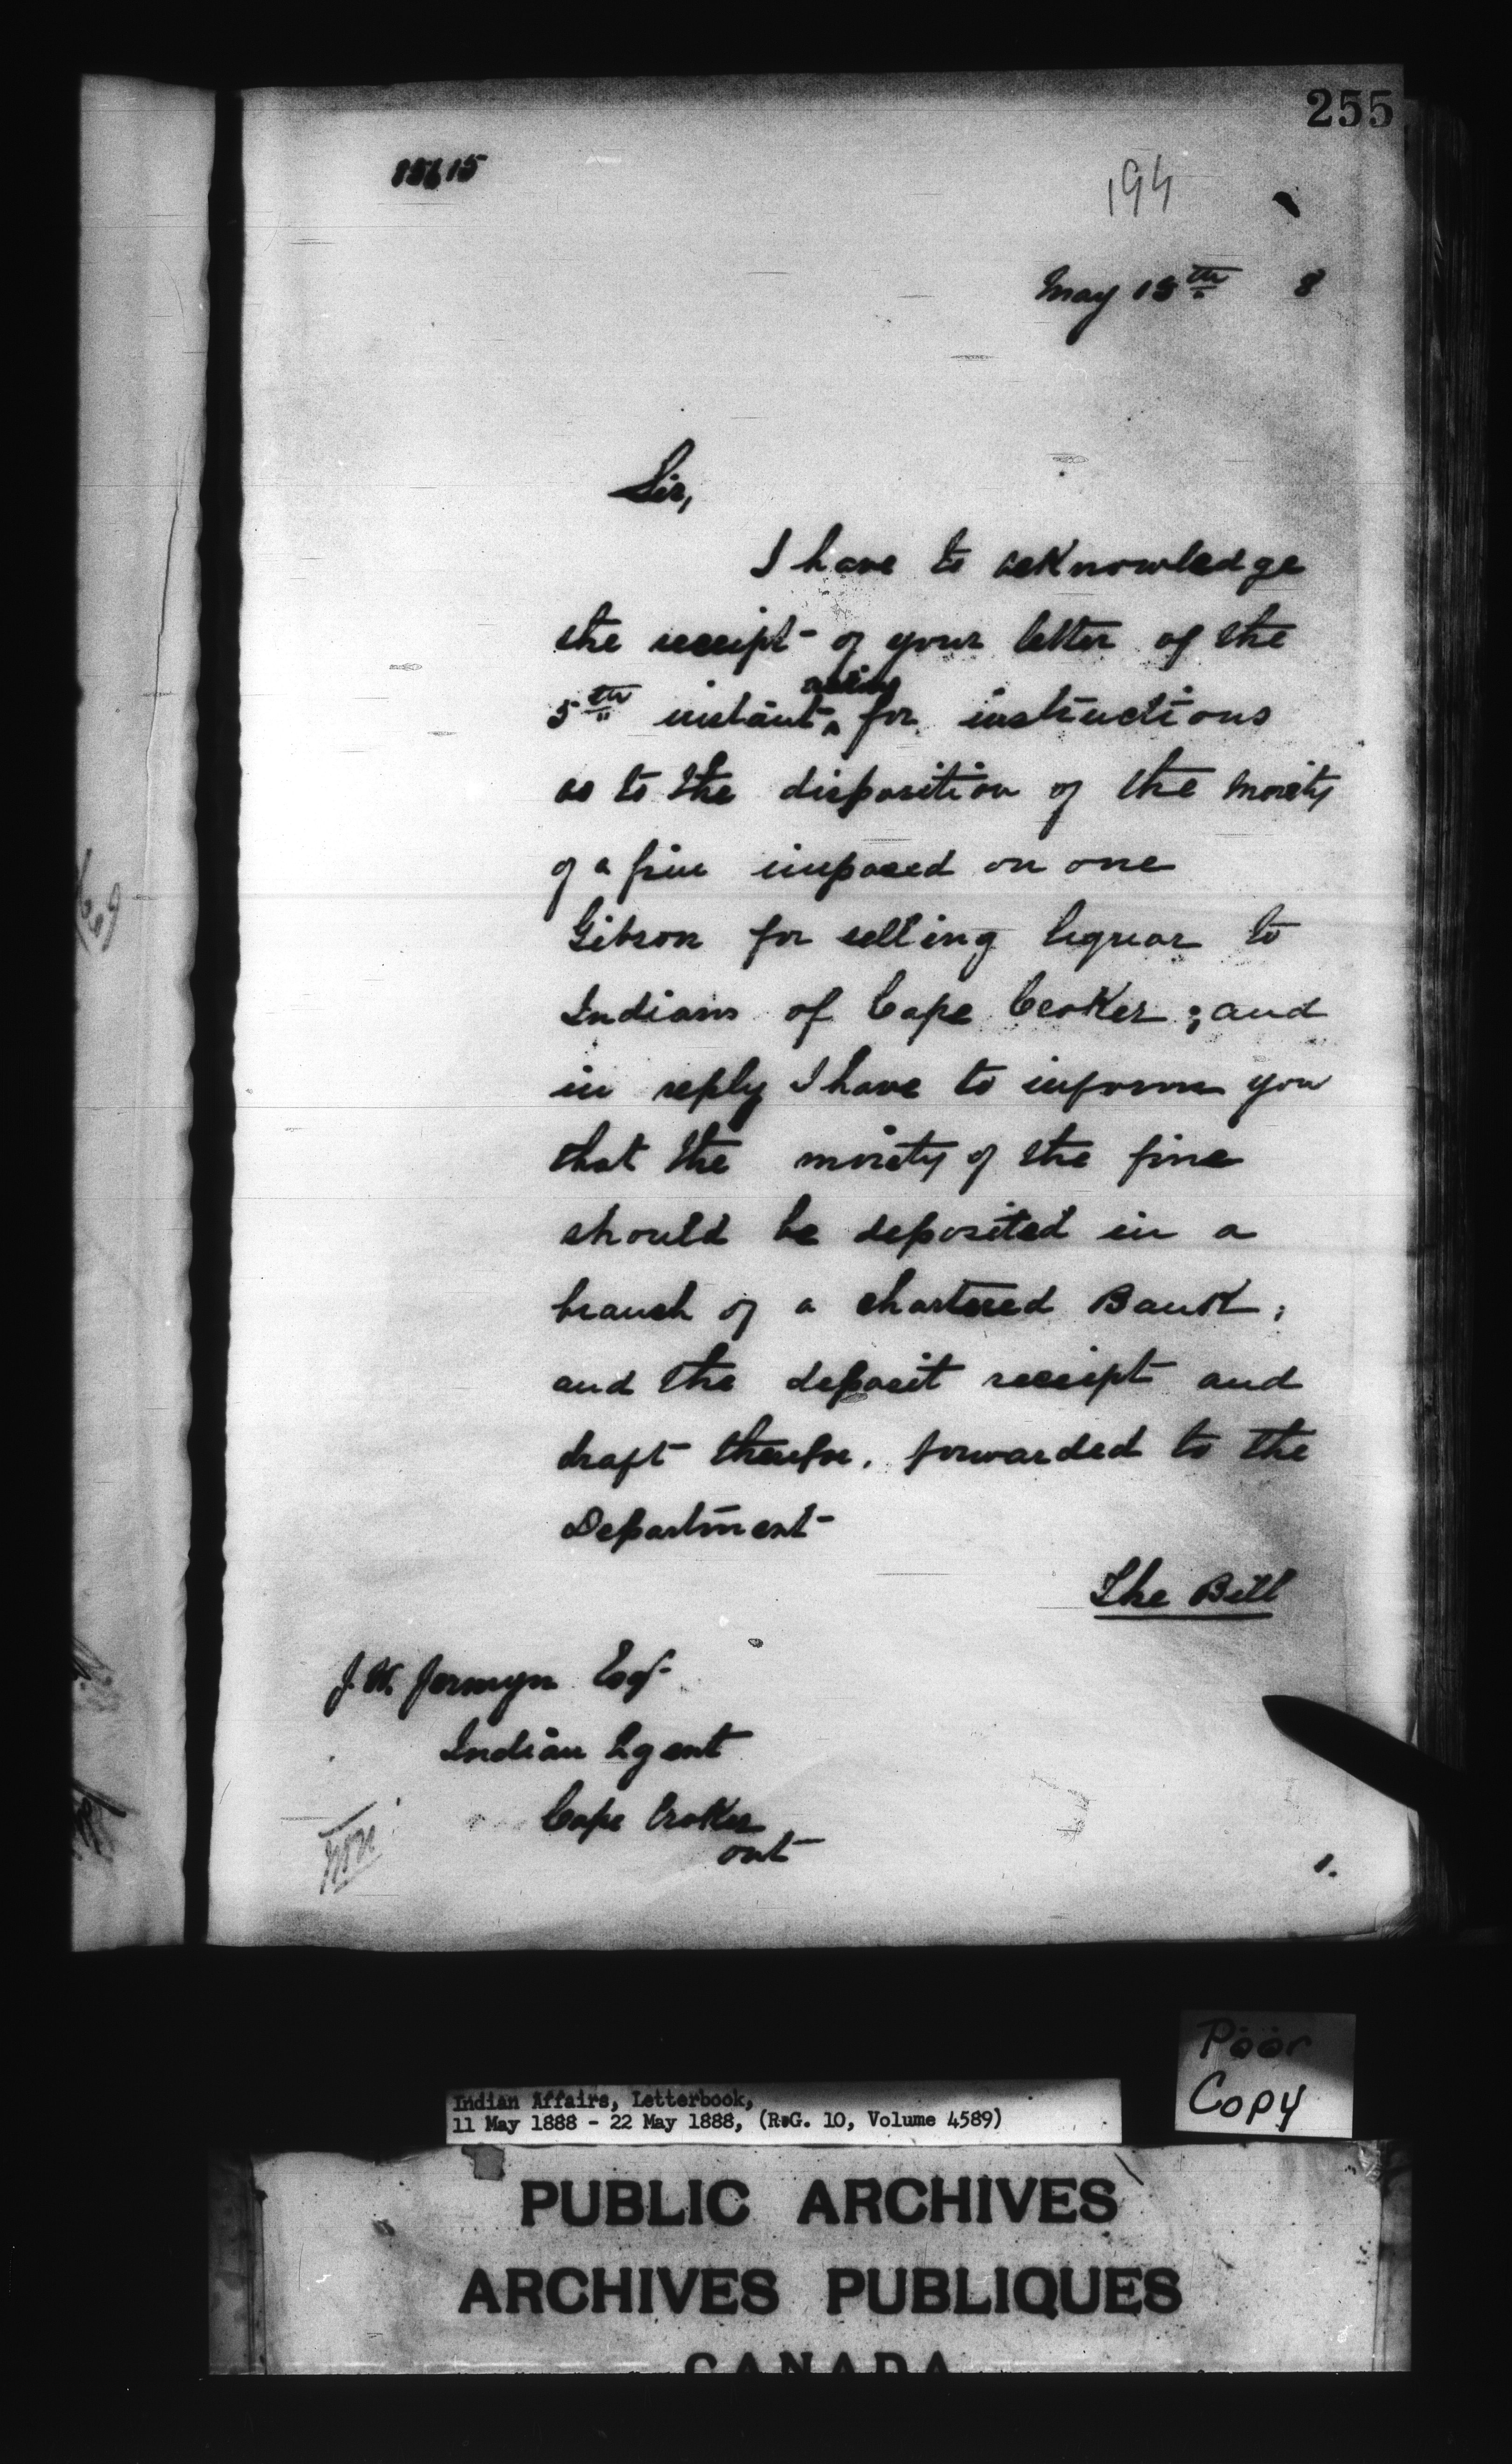 255
194
May 15th 8
Sir,
I have to acknowledge
the receipt of your letter of the
5th instant asking for instructions
as to the disposition of the moiety
of a fine imposed on one
Gibson for selling liquor to
Indians of Cape Croker; and
in reply I have to inform you
that the moiety of the fine
should be deposited in a
branch of a chartered Bank;
and the deposit receipt and
draft therefor, forwarded to the
Department
The Bill
J. W. Jermyn Esq
Indian Agent
Cape Croker
Ont
1.
Poor
Copy
Indian Affairs, Letterbook,
11 May 1888 - 22 May 1888, (R.G. 10, Volume 4589)
PUBLIC ARCHIVES
ARCHIVES PUBLIQUES
CANADA